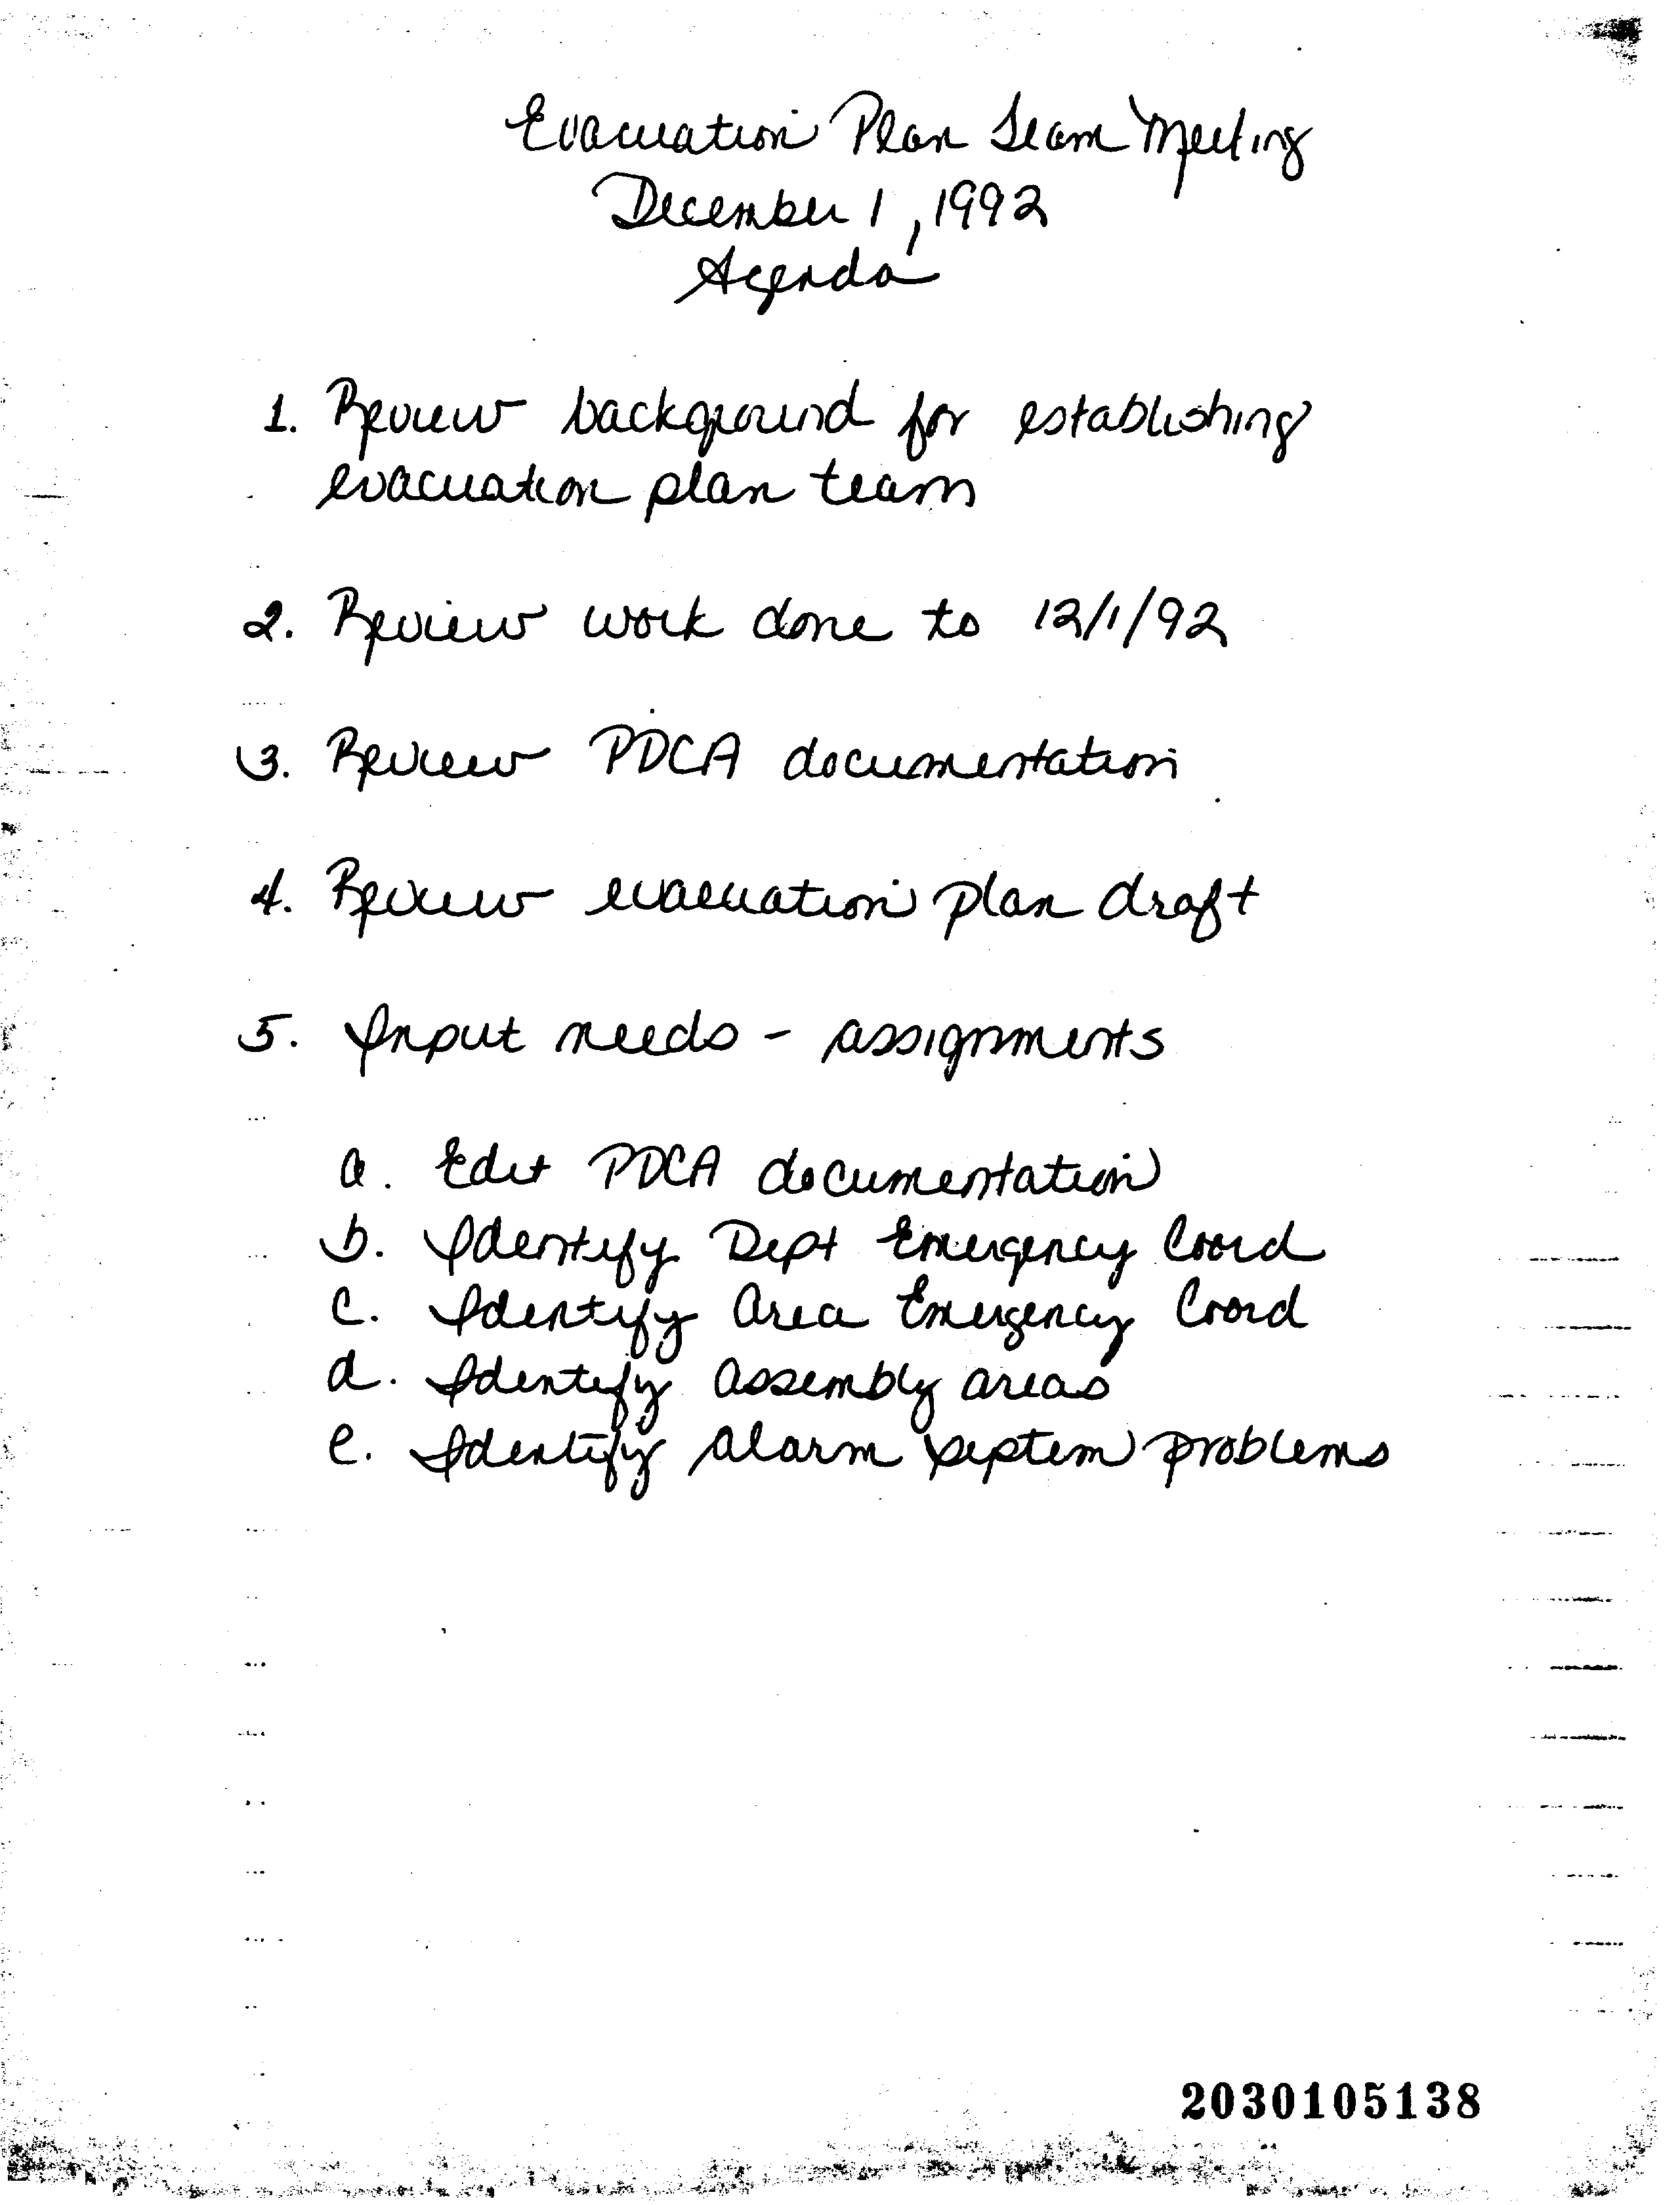 Evacuation Plan Team Meeting
December 1, 1992
Agenda
1. Review background for establishing
evacuation plan team
2. Review work done to 12/1/92
3. Review PDCA documentation
4. Review evacuation plan draft
5. Input needs - assignments
a. Edit PDCA documentation
b. Identify Dept Emergency Coord
c. Identify Area Emergency Coord
d. Identify Assembly areas
e. Identify Alarm system problems
2030105138